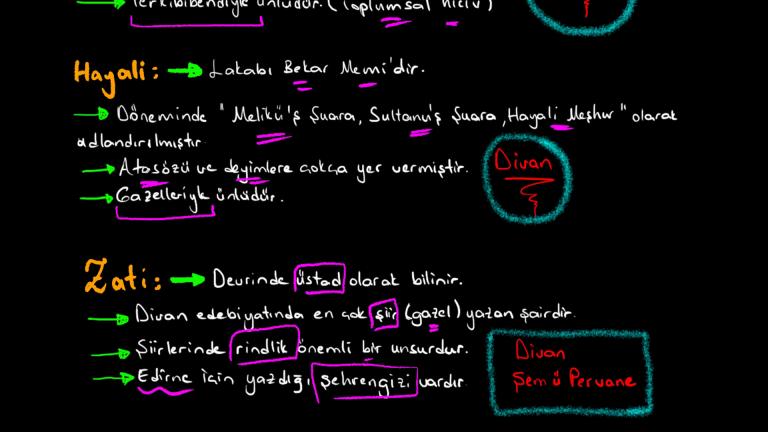 Terkibibendiyle ünlüdür. (Toplumsal hiciv)
Hayali: Lakabı Bekar Memi'dir.
Döneminde "Melikü'ş Şuara, Sultanü'ş Şuara, Hayali Meşhur" olarak
adlandırılmıştır.
Atasözü ve deyimlere çokça yer vermiştir.
Gazelleriyle ünlüdür.
Divan
Zati: Devrinde üstad olarak bilinir.
Divan edebiyatında en çok şiir (gazel) yazan şairdir.
Şiirlerinde rindlik önemli bir unsurdur.
Edirne için yazdığı şehrengizi vardır.
Divan
Şem ü Pervane